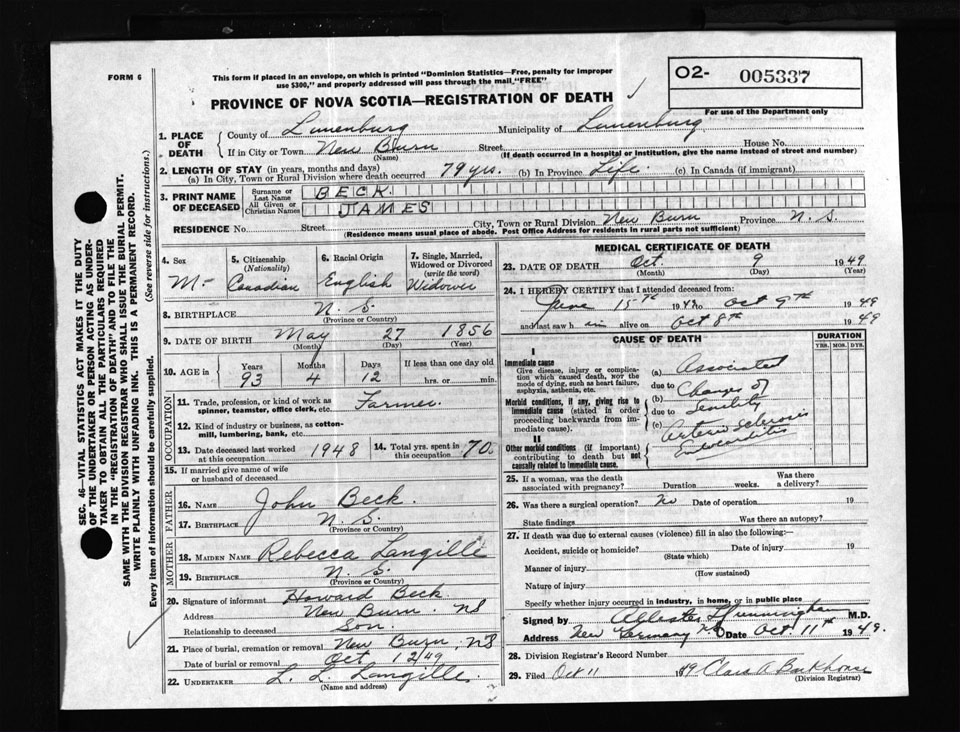 FORM 6
This form if placed in an envelope, on which is printed "Dominion Statistics—Free, penalty for improper
use $300," and properly addressed will pass through the mail "FREE"
PROVINCE OF NOVA SCOTIA—REGISTRATION OF DEATH
O2- 005337
For use of the Department only
1. PLACE OF DEATH
County of Lunenburg Municipality of Lunenburg
If in City or Town New Burn Street House No.
(Name) (If death occurred in a hospital or institution, give the name instead of street and number)
2. LENGTH OF STAY (in years, months and days)
(a) In City, Town or Rural Division where death occurred 79 yrs. (b) In Province Life. (c) In Canada (if immigrant)
3. PRINT NAME OF DECEASED
Surname or Last Name BECK.
All Given or Christian Names JAMES
RESIDENCE No. Street City, Town or Rural Division New Burn Province N. S.
(Residence means usual place of abode. Post Office Address for residents in rural parts not sufficient)
4. Sex M-
5. Citizenship (Nationality) Canadian
6. Racial Origin English
7. Single, Married, Widowed or Divorced (write the word) Widower
8. BIRTHPLACE N. S.
(Province or Country)
9. DATE OF BIRTH May 27 1856
(Month) (Day) (Year)
10. AGE in Years 93 Months 4 Days 12
If less than one day old
hrs. or min.
OCCUPATION
11. Trade, profession, or kind of work as
spinner, teamster, office clerk, etc. Farmer.
12. Kind of industry or business, as cotton-
mill, lumbering, bank, etc.
13. Date deceased last worked at this occupation 1948
14. Total yrs. spent in this occupation 70
15. If married give name of wife
or husband of deceased
FATHER
16. NAME John Beck.
17. BIRTHPLACE N. S.
(Province or Country)
MOTHER
18. MAIDEN NAME Rebecca Langille
19. BIRTHPLACE N. S.
(Province or Country)
20. Signature of informant Howard Beck.
Address New Burn NS
Relationship to deceased Son.
21. Place of burial, cremation or removal New Burn, NS
Date of burial or removal Oct 12/49
22. UNDERTAKER L. L. Langille.
(Name and address)
MEDICAL CERTIFICATE OF DEATH
23. DATE OF DEATH Oct. 9 1949
(Month) (Day) (Year)
24. I HEREBY CERTIFY that I attended deceased from:
June 15th 19 to Oct 9th 1949
and last saw h im alive on Oct 8th 1949
CAUSE OF DEATH
DURATION
YRS. MOS. DYS.
I
Immediate cause
Give disease, injury or complica-
tion which caused death, NOT the
mode of dying, such as heart failure,
asphyxia, asthenia, etc.
Morbid conditions, if any, giving rise to
immediate cause (stated in order
proceeding backwards from im-
mediate cause).
II
Other morbid conditions (if important)
contributing to death but not
causally related to immediate cause.
(a) Associated
due to
(b) Changes of
due to Senility
(c) Arterio Sclerosis
Endocarditis
25. If a woman, was the death
associated with pregnancy? Duration weeks. Was there
a delivery?
26. Was there a surgical operation? No Date of operation 19
State findings Was there an autopsy?
27. If death was due to external causes (violence) fill in also the following:—
Accident, suicide or homicide? Date of injury 19
(State which)
Manner of injury
(How sustained)
Nature of injury
Specify whether injury occurred in industry, in home, or in public place
Signed by Cunningham M.D.
Address New Germany N.S. Date Oct. 11th 1949.
28. Division Registrar's Record Number
29. Filed Oct 11 19 Clara A Barkhouse
(Division Registrar)
SEC. 46—VITAL STATISTICS ACT MAKES IT THE DUTY
OF THE UNDERTAKER OR PERSON ACTING AS UNDER-
TAKER TO OBTAIN ALL THE PARTICULARS REQUIRED
IN THE "REGISTRATION OF DEATH" AND TO FILE THE
SAME WITH THE DIVISION REGISTRAR WHO SHALL ISSUE THE BURIAL PERMIT.
WRITE PLAINLY WITH UNFADING INK. THIS IS A PERMANENT RECORD.
Every item of information should be carefully supplied. (See reverse side for instructions.)